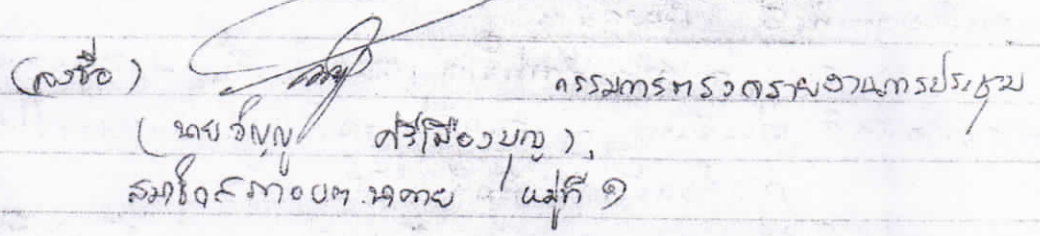 (ลงชื่อ) กรรมการตรวจรายงานการประชุม
(นายวิญญู ศรีเมืองบุญ)
สมาชิกสภาอบต.นาตาย หมู่ที่ ๑